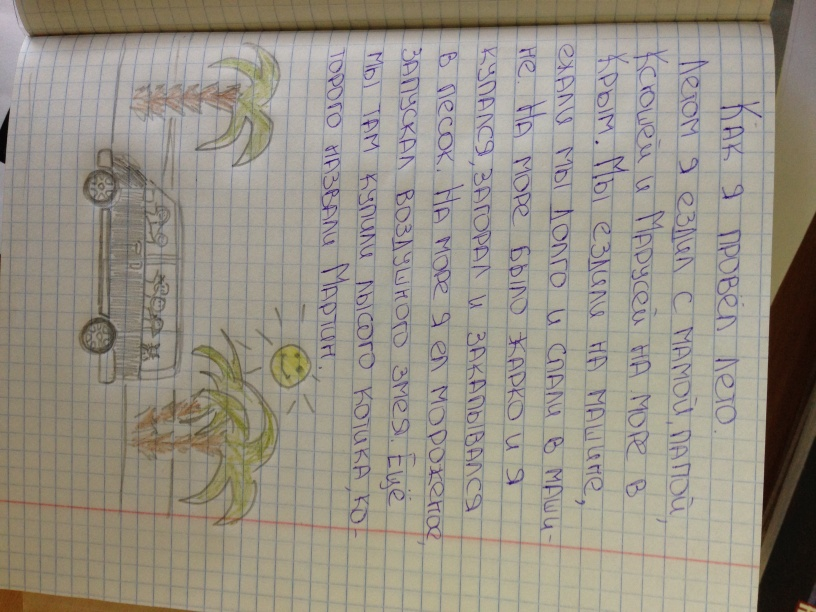 Как я провёл лето.
Летом я ездил с мамой, папой,
Ксюшей и Марусей на море в
Крым. Мы ездили на машине,
ехали мы долго и спали в маши-
не. На море было жарко и я
купался, загорал и закапывался
в песок. На море я ел мороженое,
запускал воздушного змея. Ещё
мы там купили лысого котика, ко-
торого назвали Мартин.